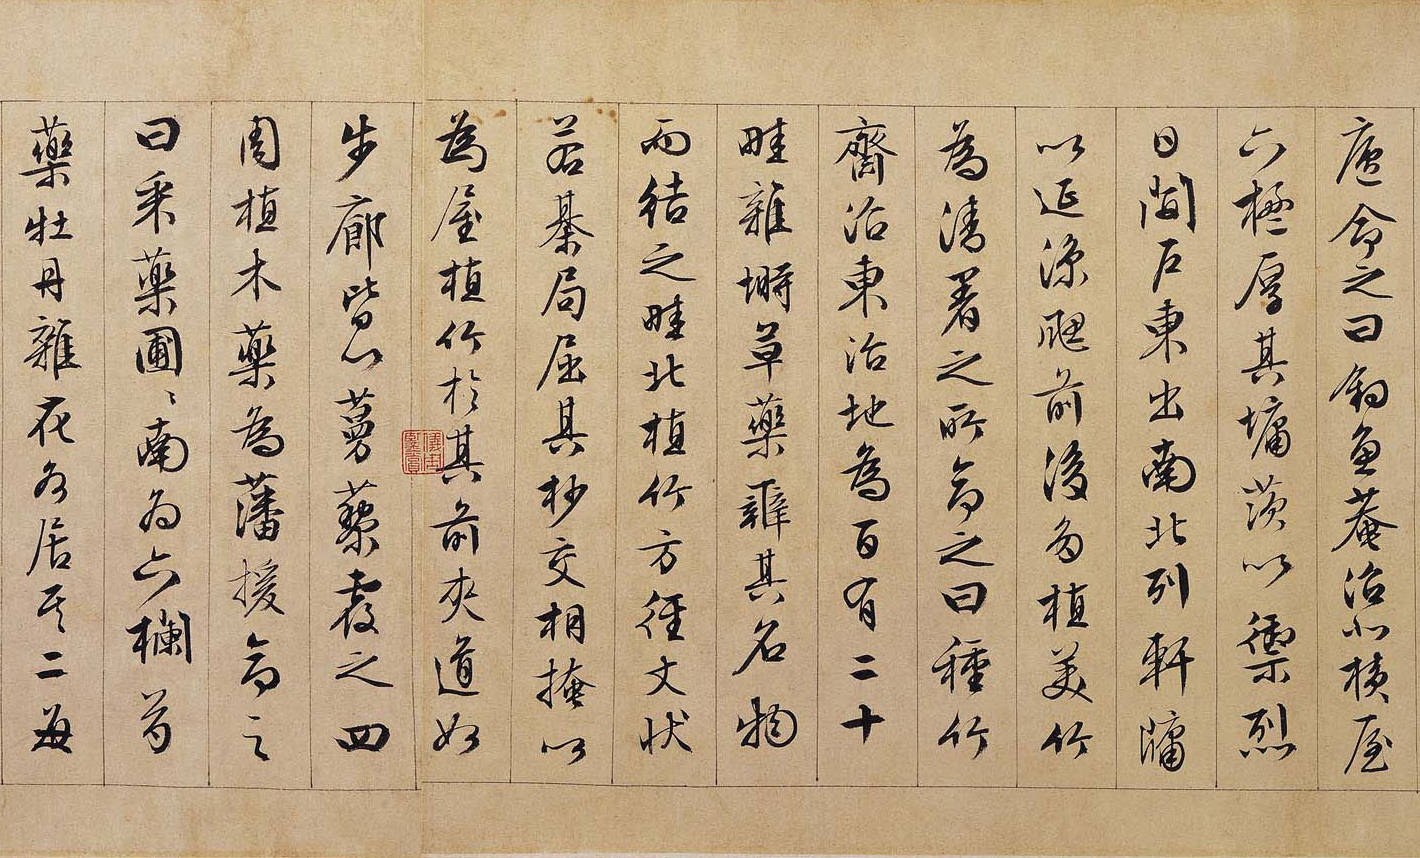 廬命之曰釣魚菴沼北橫屋
六楹厚其墉茨以禦烈
日開戶東出南北列軒牖
以延涼颸前後多植美竹
為清暑之所命之曰種竹
齋沼東治地為百有二十
畦雜蒔草藥辨其名物
而結之畦北植竹方徑丈狀
若棊局屈其杪交相掩以
為屋植竹於其前夾道如
步廊皆以蔓藥覆之四
周植木藥為藩援命之
曰采藥圃〻南為六欄芍
藥牡丹雜花各居其二每